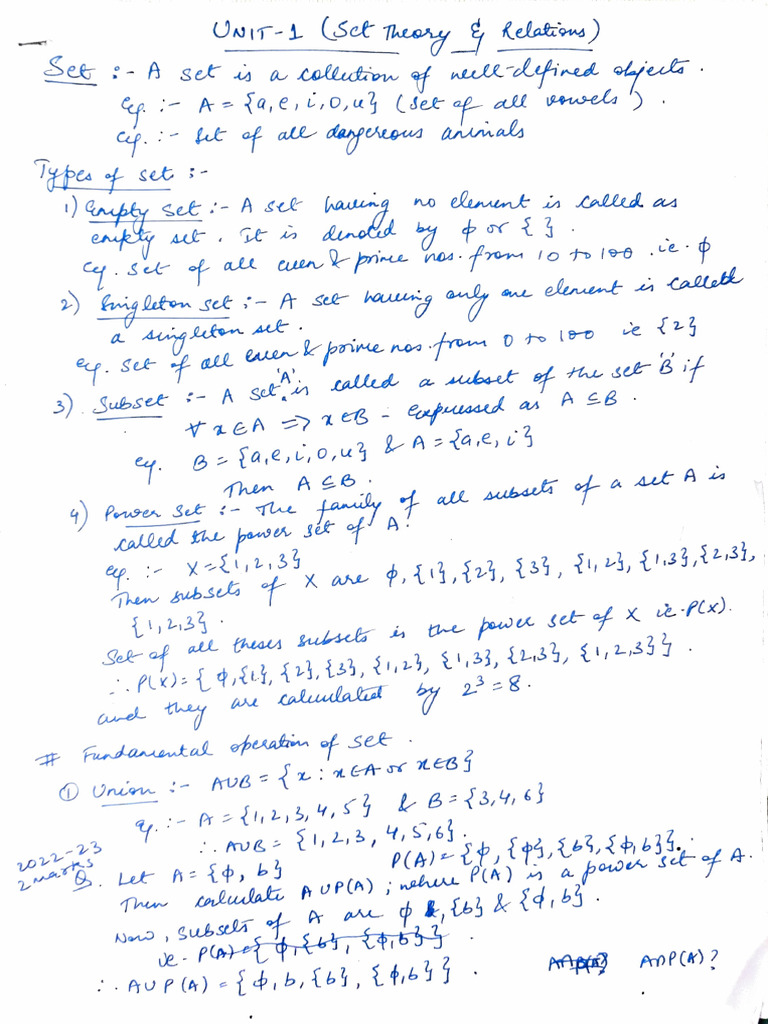 UNIT-1 (Set Theory & Relations)
Set :- A set is a collection of well-defined objects.
eg. :- A = {a, e, i, o, u} (set of all vowels).
eg. :- set of all dangereous animals
Types of set :-
1) Empty set :- A set having no element is called as
empty set. It is denoted by ϕ or { }.
eg. set of all even & prime nos. from 10 to 100 .ie. ϕ
2) Singleton set :- A set having only one element is called
a singleton set.
eg. set of all even & prime nos. from 0 to 100 ie {2}
3) Subset :- A set 'A' is called a subset of the set 'B' if
∀ x ∈ A ⇒ x ∈ B - expressed as A ⊆ B.
eg. B = {a, e, i, o, u} & A = {a, e, i}
Then A ⊆ B.
4) Power Set :- The family of all subsets of a set A is
called the power set of A.
eg. :- X = {1, 2, 3}
Then subsets of X are ϕ, {1}, {2}, {3}, {1, 2}, {1, 3}, {2, 3},
{1, 2, 3}.
Set of all theses subsets is the power set of X ie. P(X).
∴ P(X) = {ϕ, {1}, {2}, {3}, {1, 2}, {1, 3}, {2, 3}, {1, 2, 3}}.
and they are calculated by 2³ = 8.
# Fundamental operation of set.
① Union :- A∪B = {x : x ∈ A or x ∈ B}
eg. :- A = {1, 2, 3, 4, 5} & B = {3, 4, 6}
∴ A∪B = {1, 2, 3, 4, 5, 6}.
2022-23
2 marks
Q. Let A = {ϕ, b} P(A) = {ϕ, {ϕ}, {b}, {ϕ, b}}.
Then calculate A∪P(A) ; where P(A) is a power set of A.
Now, subsets of A are ϕ, {b} & {ϕ, b}.
ie. P(A) = {ϕ, {b}, {ϕ, b}}.
∴ A∪P(A) = {ϕ, b, {b}, {ϕ, b}}. A∩P(A)?